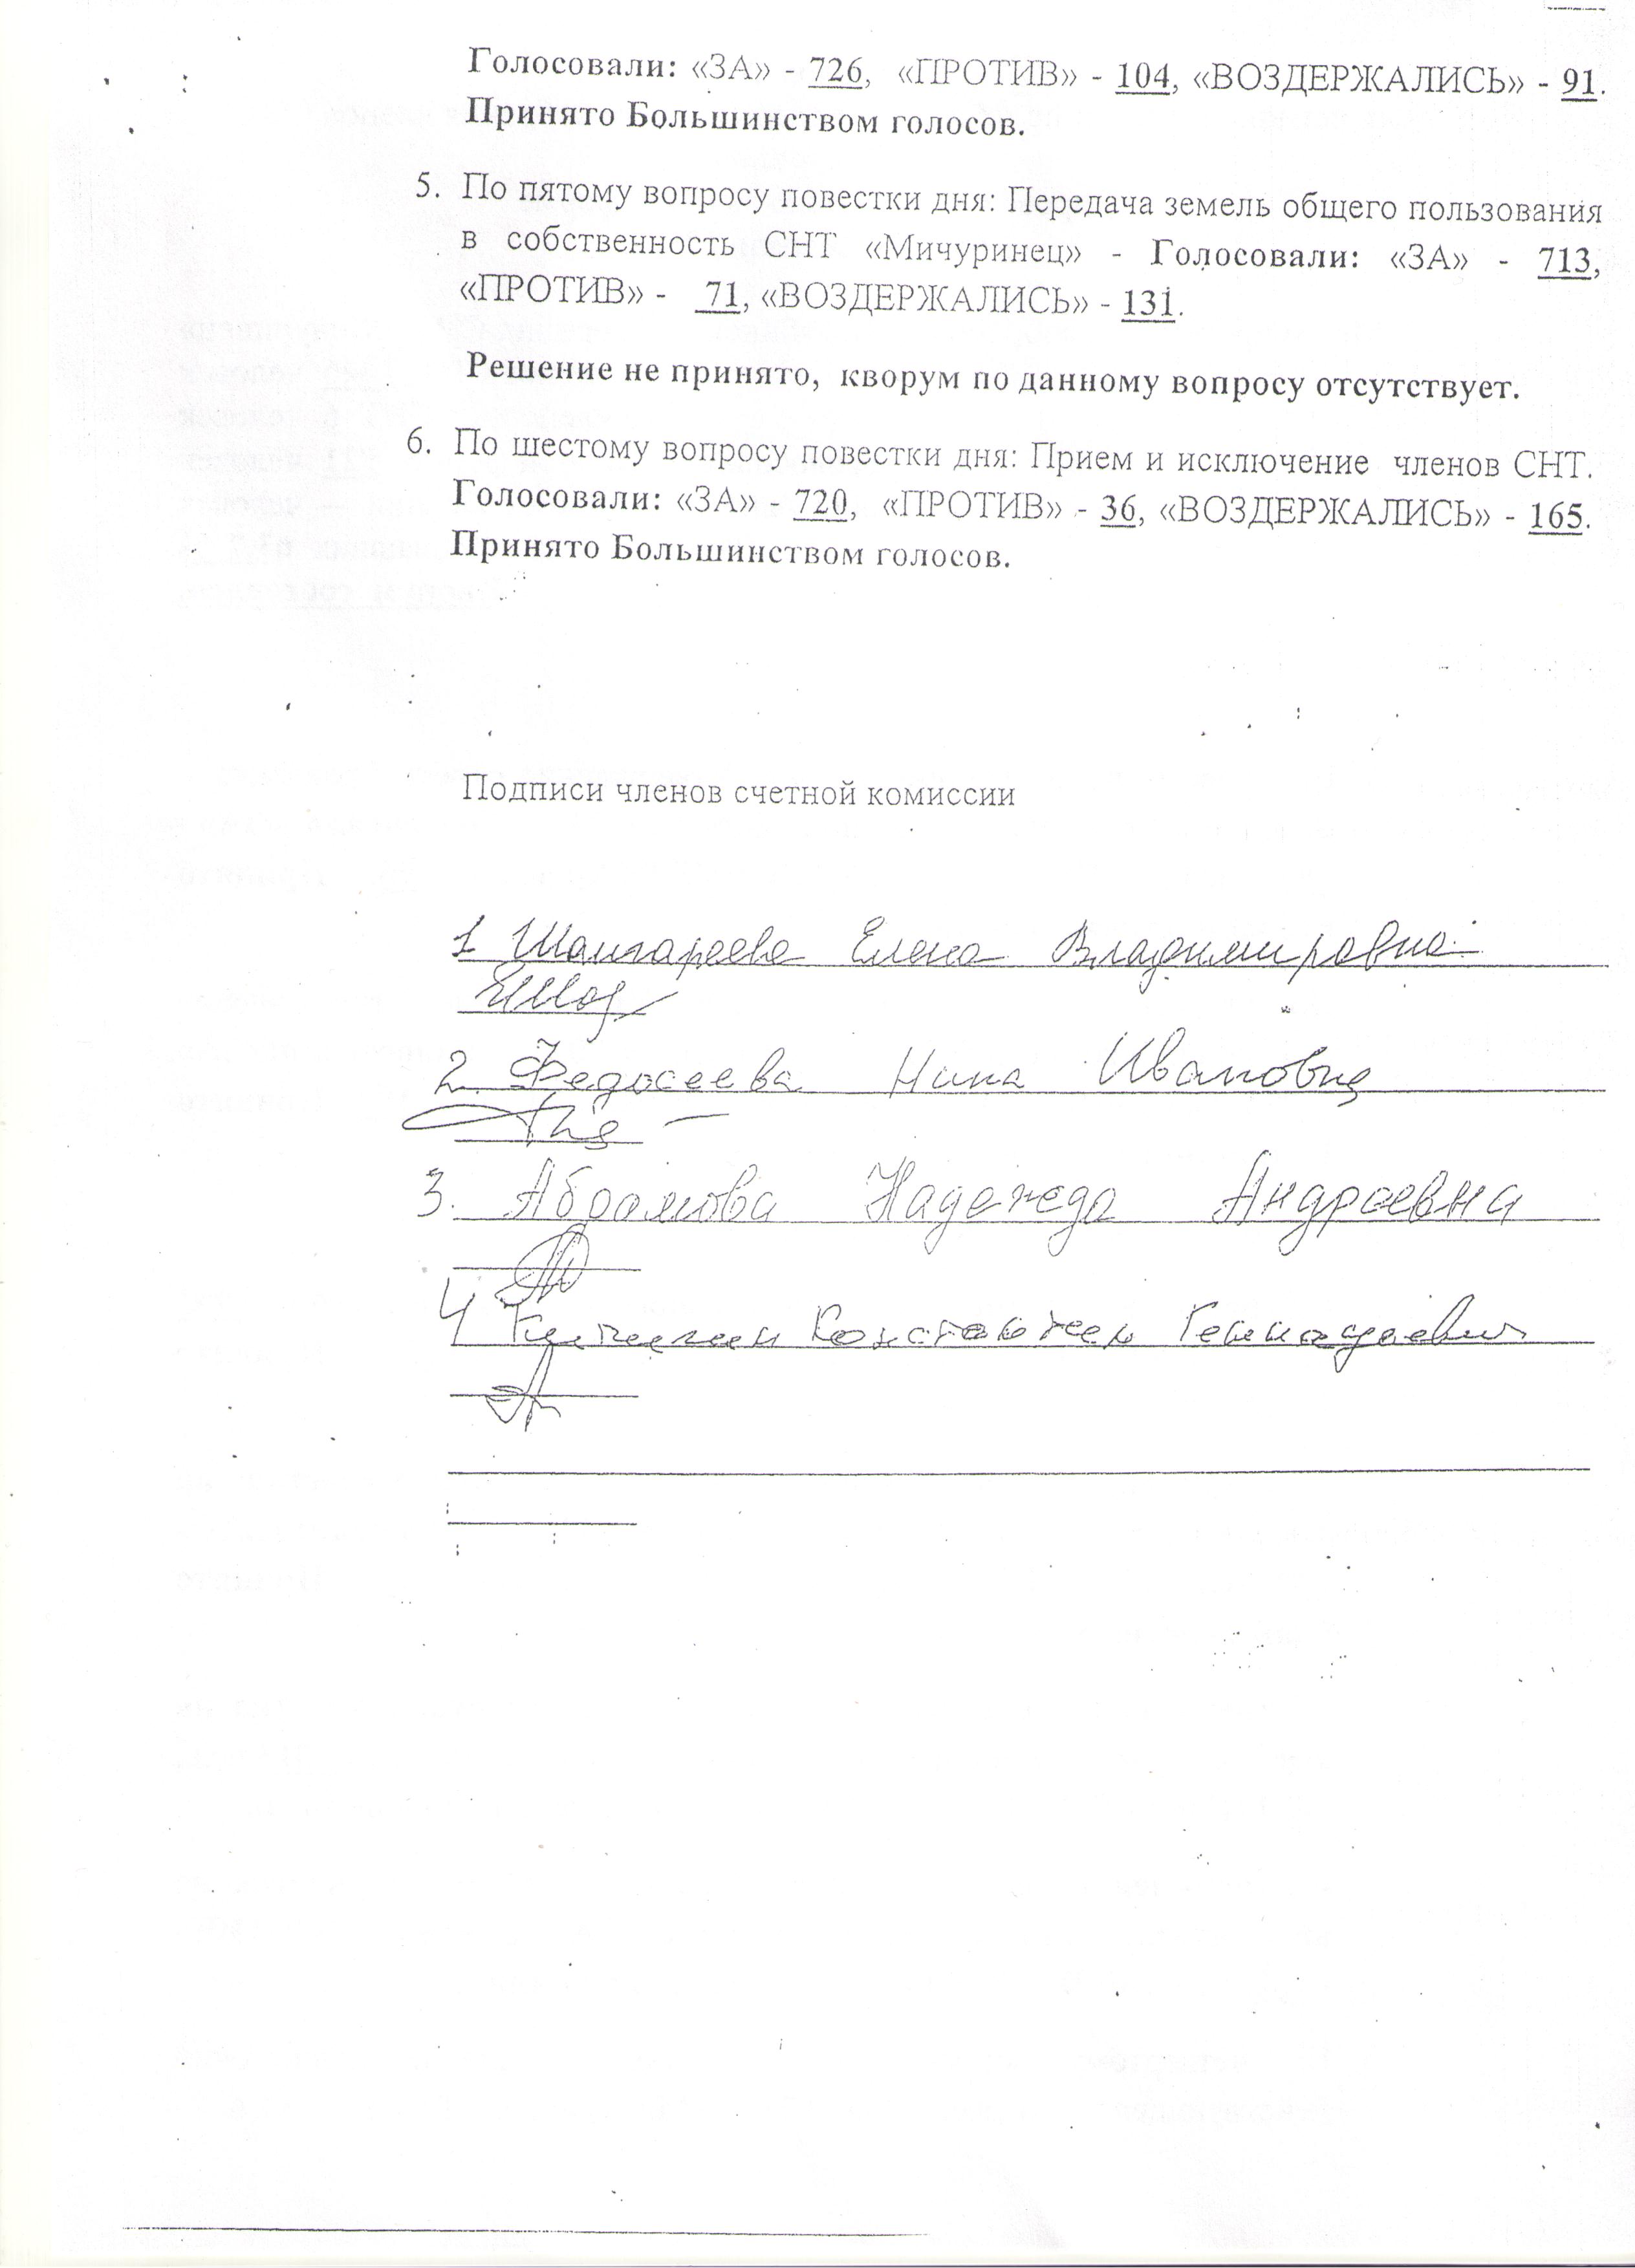 Голосовали: «ЗА» - 726, «ПРОТИВ» - 104, «ВОЗДЕРЖАЛИСЬ» - 91.
Принято Большинством голосов.
5. По пятому вопросу повестки дня: Передача земель общего пользования
в собственность СНТ «Мичуринец» - Голосовали: «ЗА» - 713,
«ПРОТИВ» - 71, «ВОЗДЕРЖАЛИСЬ» - 131.
Решение не принято, кворум по данному вопросу отсутствует.
6. По шестому вопросу повестки дня: Прием и исключение членов СНТ.
Голосовали: «ЗА» - 720, «ПРОТИВ» - 36, «ВОЗДЕРЖАЛИСЬ» - 165.
Принято Большинством голосов.
Подписи членов счетной комиссии
1 Шангареева Елена Владимировна
2. Федосеева Нина Ивановна
3. Абрамова Надежда Андреевна
4 Константин Геннадьевич